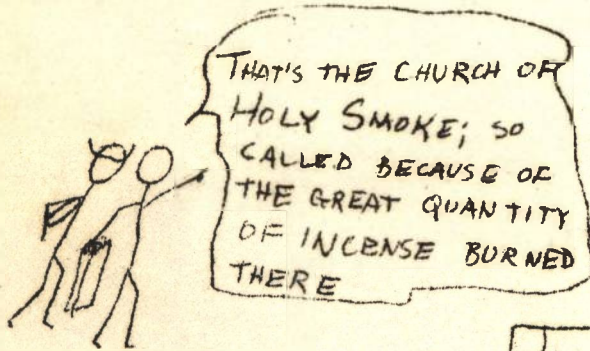 THAT'S THE CHURCH OF
HOLY SMOKE; SO
CALLED BECAUSE OF
THE GREAT QUANTITY
OF INCENSE BURNED
THERE